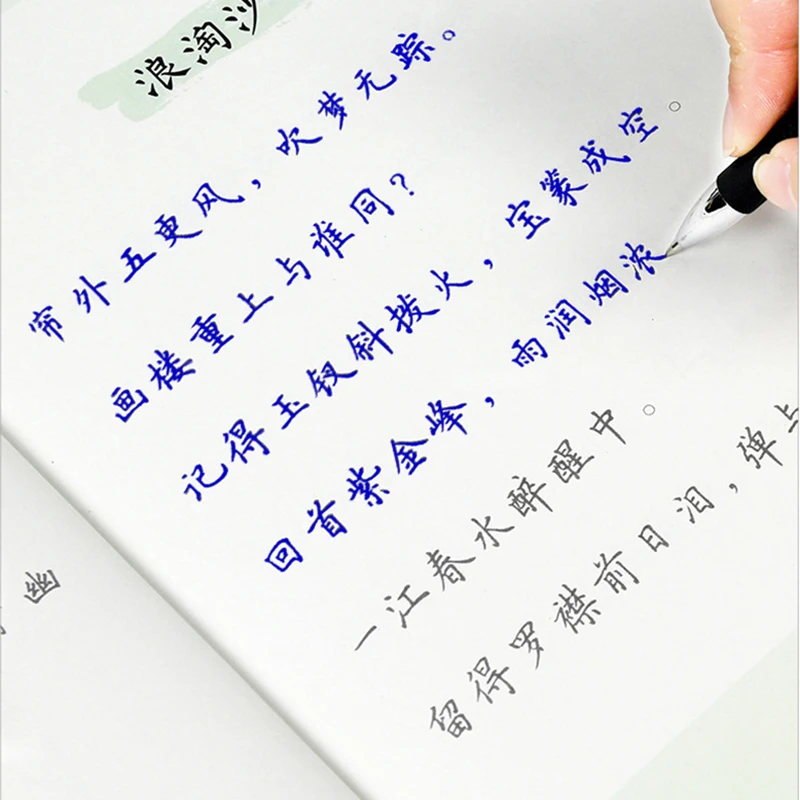 浪淘沙
帘外五更风，吹梦无踪。
画楼重上与谁同？
记得玉钗斜拨火，宝篆成空。
回首紫金峰，雨润烟浓
一江春水醉醒中。
留得罗襟前日泪，弹与
幽